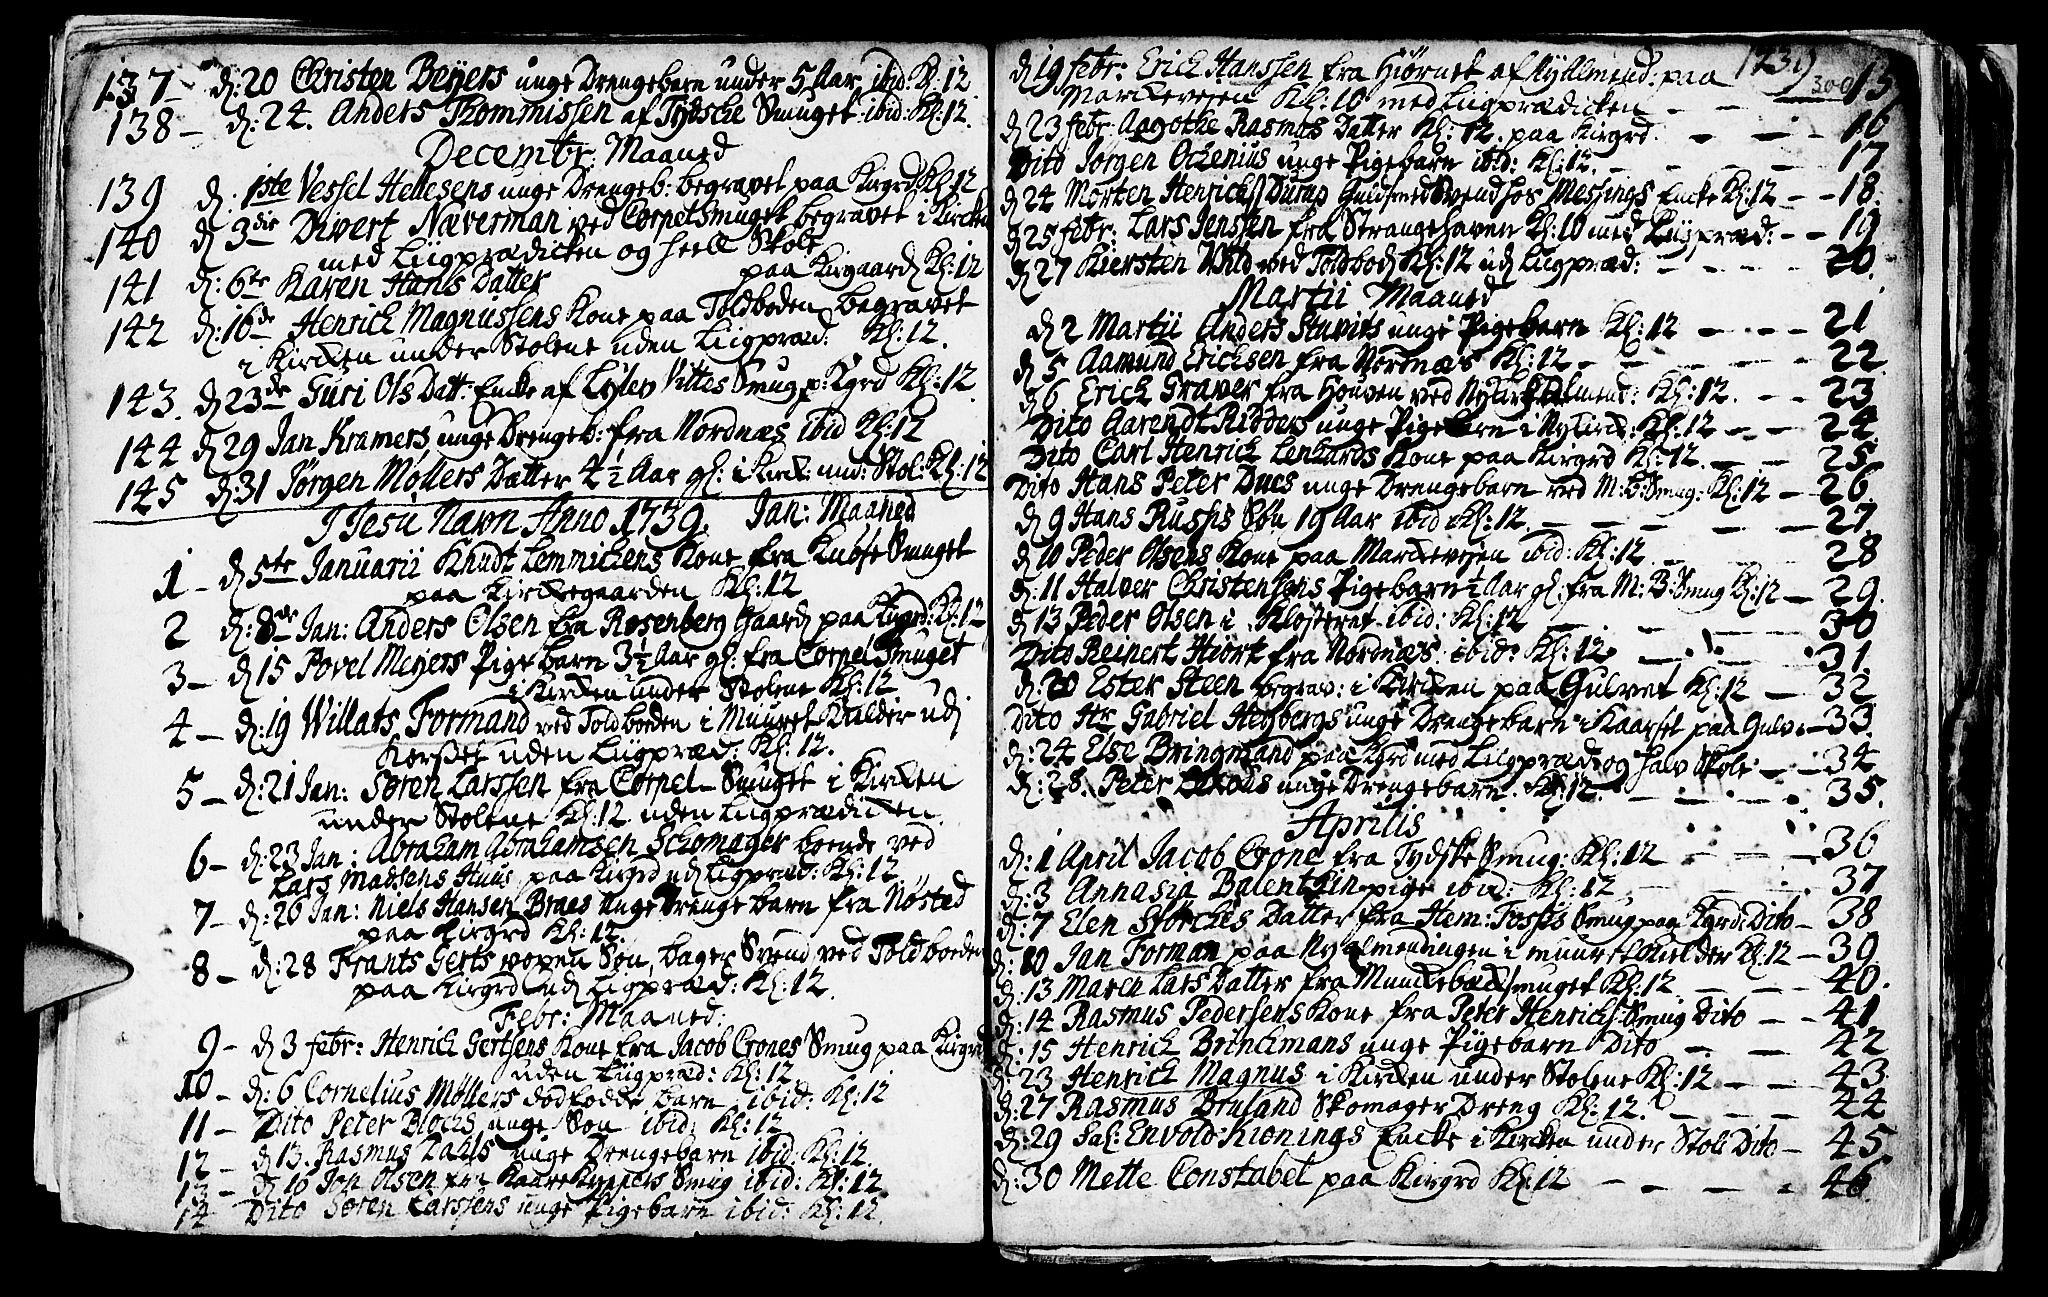 137 - d: 20 Christen Beÿers unge Drengebarn under 5 Aar ibid: Kl: 12.
138 - d: 24. Anders Thommissen af Tydsche Smuget ibid: Kl: 12.
Decembr: Maaned
139 d: 1ste Vessel Hellesens unge Drengeb: begravet paa Kirgrd Kl: 12
140 d 3die Divert Næverman ved Corpelsmuget begravet i Kircken
med Liigprædicken og heele Skole
141 d: 6te Karen Hans Datter paa Kirgaard Kl: 12
142 d: 16de Henrich Magnussens Kone paa Toldboden begravet
i Kircken under Stolene uden Liigpræd: Kl: 12.
143. d 23de Turi Ols Datt: Encke af Vittes Smug p: Kgrd Kl: 12.
144 d 29 Jan Kramers unge Drengeb: fra Nordnæs ibid Kl: 12
145 d: 31 Jørgen Møllers Datter 4½ Aar gl: i Kirck: und: Stol: Kl: 12
J Jesu Navn Anno 1739. Jan: Maaned
1 - d 5te Januarii Knudt Lemmickens Kone fra Knøse Smuget
paa Kirckegaarden Kl: 12
2 d: 8de Jan: Anders Olsen fra Rosenberg Gaard paa Kirgrd: Kl: 12
3 - d 15 Povel Meyers Pigebarn 3½ Aar gl: fra Corpel Smuget
i Kircken under Stolene Kl: 12
4 - d: 19 Willats Formand ved Toldboeden i Muuret Kielder ud
Korset uden Liigpræd: Kl: 12.
5 - d: 21 Jan: Søren Larssen fra Corpel-Smuget i Kircken
under Stolene Kl: 12 uden Liigprædicken.
6 - d: 23 Jan: Abraham Abrahamsen Schomager boende ved
Lars Madsens Huus paa Kirgrd ud Liigpræd: Kl: 12.
7 - d: 26 Jan: Niels Hansen Braes unge Drenge barn fra Nøsted
paa Kirgrd Kl: 12.
8 - d: 28 Frants Gerts voxen Søn, Bager Svend ved Toldboeden
paa Kirgrd ud Ligpræd: Kl: 12.
Febr: Maaned:
9 - d 3 febr: Henrich Gertsens Kone fra Jacob Crones Smug paa Kirgrd
uden Liigpræd: Kl: 12.
10 - d: 6 Cornelius Møllers dødfødde barn ibid: Kl: 12
11 - Dito Peter Blochs unge Søn ibid: Kl: 12
12 - d 13. Rasmus Dahls unge Drengebarn ibid: Kl: 12.
13 - d 16 Jon Olsen fra Smug ibid: Kl: 12
14 Dito Søren Larssens unge Pigebarn ibid: Kl: 12.
1739
300
d 19 febr: Erich Hanssen fra Hiørnet af Nyealmend: paa 15
Marckevejen Kl: 10 med Liigprædicken
d 23 febr: Aagothe Rasmus Datter Kl: 12. paa Kirgrd. - - - 16
Dito Jørgen Ockenius unge Pigebarn ibid: Kl: 12. - - - 17
d 24 Morten Henrichs Guldsmed Svend hos Messings Encke Kl: 12 - - 18.
d 25 febr: Lars Jenssen fra Strangehaven Kl: 10 med Liigpræd: - - 19
d 27 Kiersten Wild ved Toldbod Kl: 12 ud Liigpræd: - - - - 20.
Martii Maaned
d 2 Martii Anders unge Pigebarn Kl: 12 - - - - 21
d 5 Aamund Ericksen fra Nordnæs Kl: 12 - - - - 22.
d 6 Erich Graver fra Houven ved Nykirk Almend: Kl: 12. - - 23
Dito Aarendt Ridders unge Pigebarn i Nykirk: Kl: 12 - - - 24
Dito Carl Henrich Lenhards Kone paa Kirgrd Kl: 12. - - - 25.
Dito Hans Peter Dues unge Drengebarn ved M: B: Smug: Kl: 12 - 26.
d 9 Hans Rusps Søn 19 Aar ibid Kl: 12. - - - - 27
d 10 Peder Olsens Kone paa Marckevejen ibid: Kl: 12 - - - 28
d: 11 Halver Christensens Pigebarn ½ Aar gl: fra M: B: Smug Kl: 12 - 29.
d 13 Peder Olsen i Klosteret ibid: Kl: 12 - - - - 30
Dito Reinert Hiort fra Nordnæs ibid: Kl: 12. - - - 31.
d: 20 Ester Steen begrav: i Kircken paa Gulvet Kl: 12 - 32
Dito Hr Gabriel Heibergs unge Drengebarn i Kaarset paa Gulv: - 33.
d: 24 Else Bringmand paa Kgrd med Liigpræd: og halv Skole - - 34
d: 28. Peter unge Drengebarn. Kl: 12. - - - 35.
Aprilis
d: 1 April Jacob Crone fra Tydske Smug: Kl: 12 - - - - 36
d: 3 Annasia Balentzin pige ibid: Kl: 12 - - - - 37
d: 7 Elen Störckes Datter fra Hem: Fosses Smug paa Kgrd: Dito - 38
d: 10 Jan Forman paa Nyalmendingen i muuret Kielder Kl: 12 - 39.
d: 13 Maren Lars Datter fra Munckebecksmuget Kl: 12. - - - 40.
d: 14 Rasmus Pedersens Kone fra Peter Henrichs: Smug Dito - - 41
d: 15 Henrich Brinckmans unge Pigebarn Dito - - - 42
d: 23 Henrich Magnus i Kircken under Stolene Kl: 12 - - 43
d: 27 Rasmus Bruland Skomager Dreng Kl: 12. - - - 44
d: 29 Sal: Envold Kionings Encke i Kircken under Stole Dito - 45.
d: 30 Mette Constabel paa Kirgrd Kl: 12 - - - - 46.